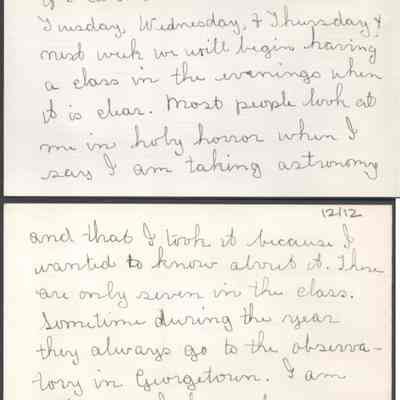 Tuesday, Wednesday, & Thursday &
next week we will begin having
a class in the evenings when
it is clear. Most people look at
me in holy horror when I
say I am taking astronomy
12/12
and that I took it because I
wanted to know about it. There
are only seven in the class.
Sometime during the year
they always go to the observa-
tory in Georgetown. I am